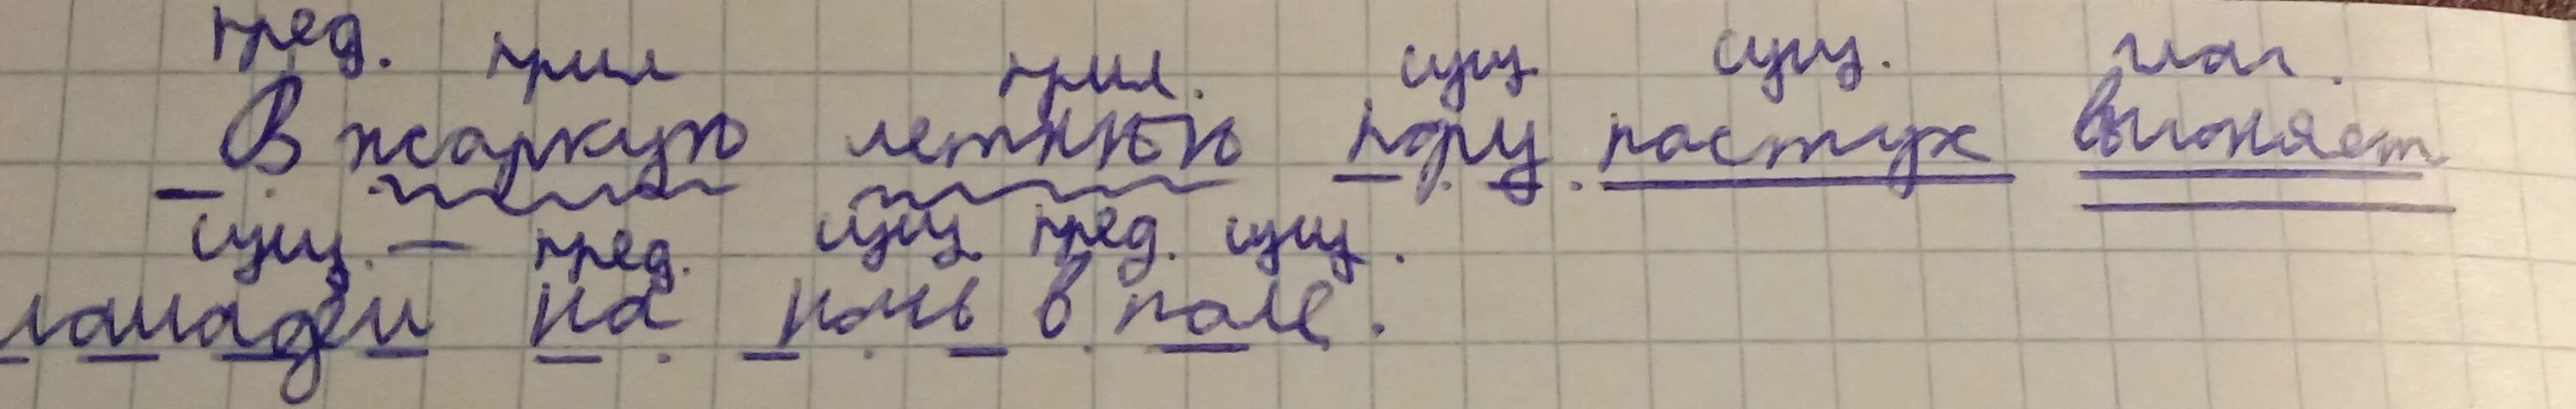 пред. прил прил. сущ сущ. глаг.
В жаркую летнюю пору пастух выгоняет
сущ. пред. сущ. пред. сущ.
лошадей на ночь в поле.